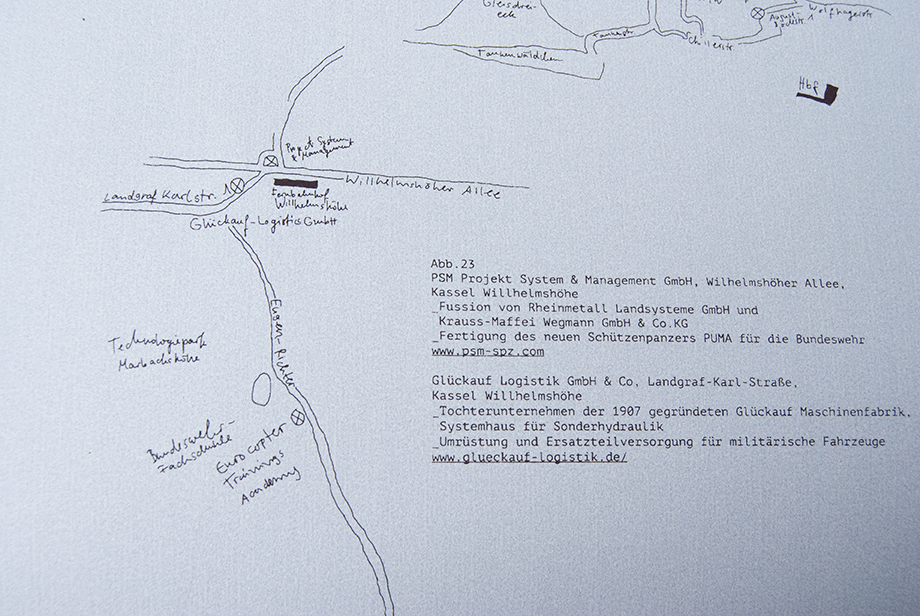 Gleisdrei-
eck
Tannenwäldchen
Tannenstr
Schillerstr
Wolfhagerstr
Hbf
Projekt System
& Management
Landgraf Karlstr. 1
Fernbahnhof
Willhelmshöhe
Willhelmshöher Allee
Glückauf-Logistics GmbH
Eugen-Richter
Technologiepark
Marbachshöhe
Bundeswehr-
Fachschule
Eurocopter
Trainings
Academy
Abb.23
PSM Projekt System & Management GmbH, Wilhelmshöher Allee,
Kassel Willhelmshöhe
_Fussion von Rheinmetall Landsysteme GmbH und
Krauss-Maffei Wegmann GmbH & Co.KG
_Fertigung des neuen Schützenpanzers PUMA für die Bundeswehr
www.psm-spz.com
Glückauf Logistik GmbH & Co, Landgraf-Karl-Straße,
Kassel Willhelmshöhe
_Tochterunternehmen der 1907 gegründeten Glückauf Maschinenfabrik,
Systemhaus für Sonderhydraulik
_Umrüstung und Ersatzteilversorgung für militärische Fahrzeuge
www.glueckauf-logistik.de/